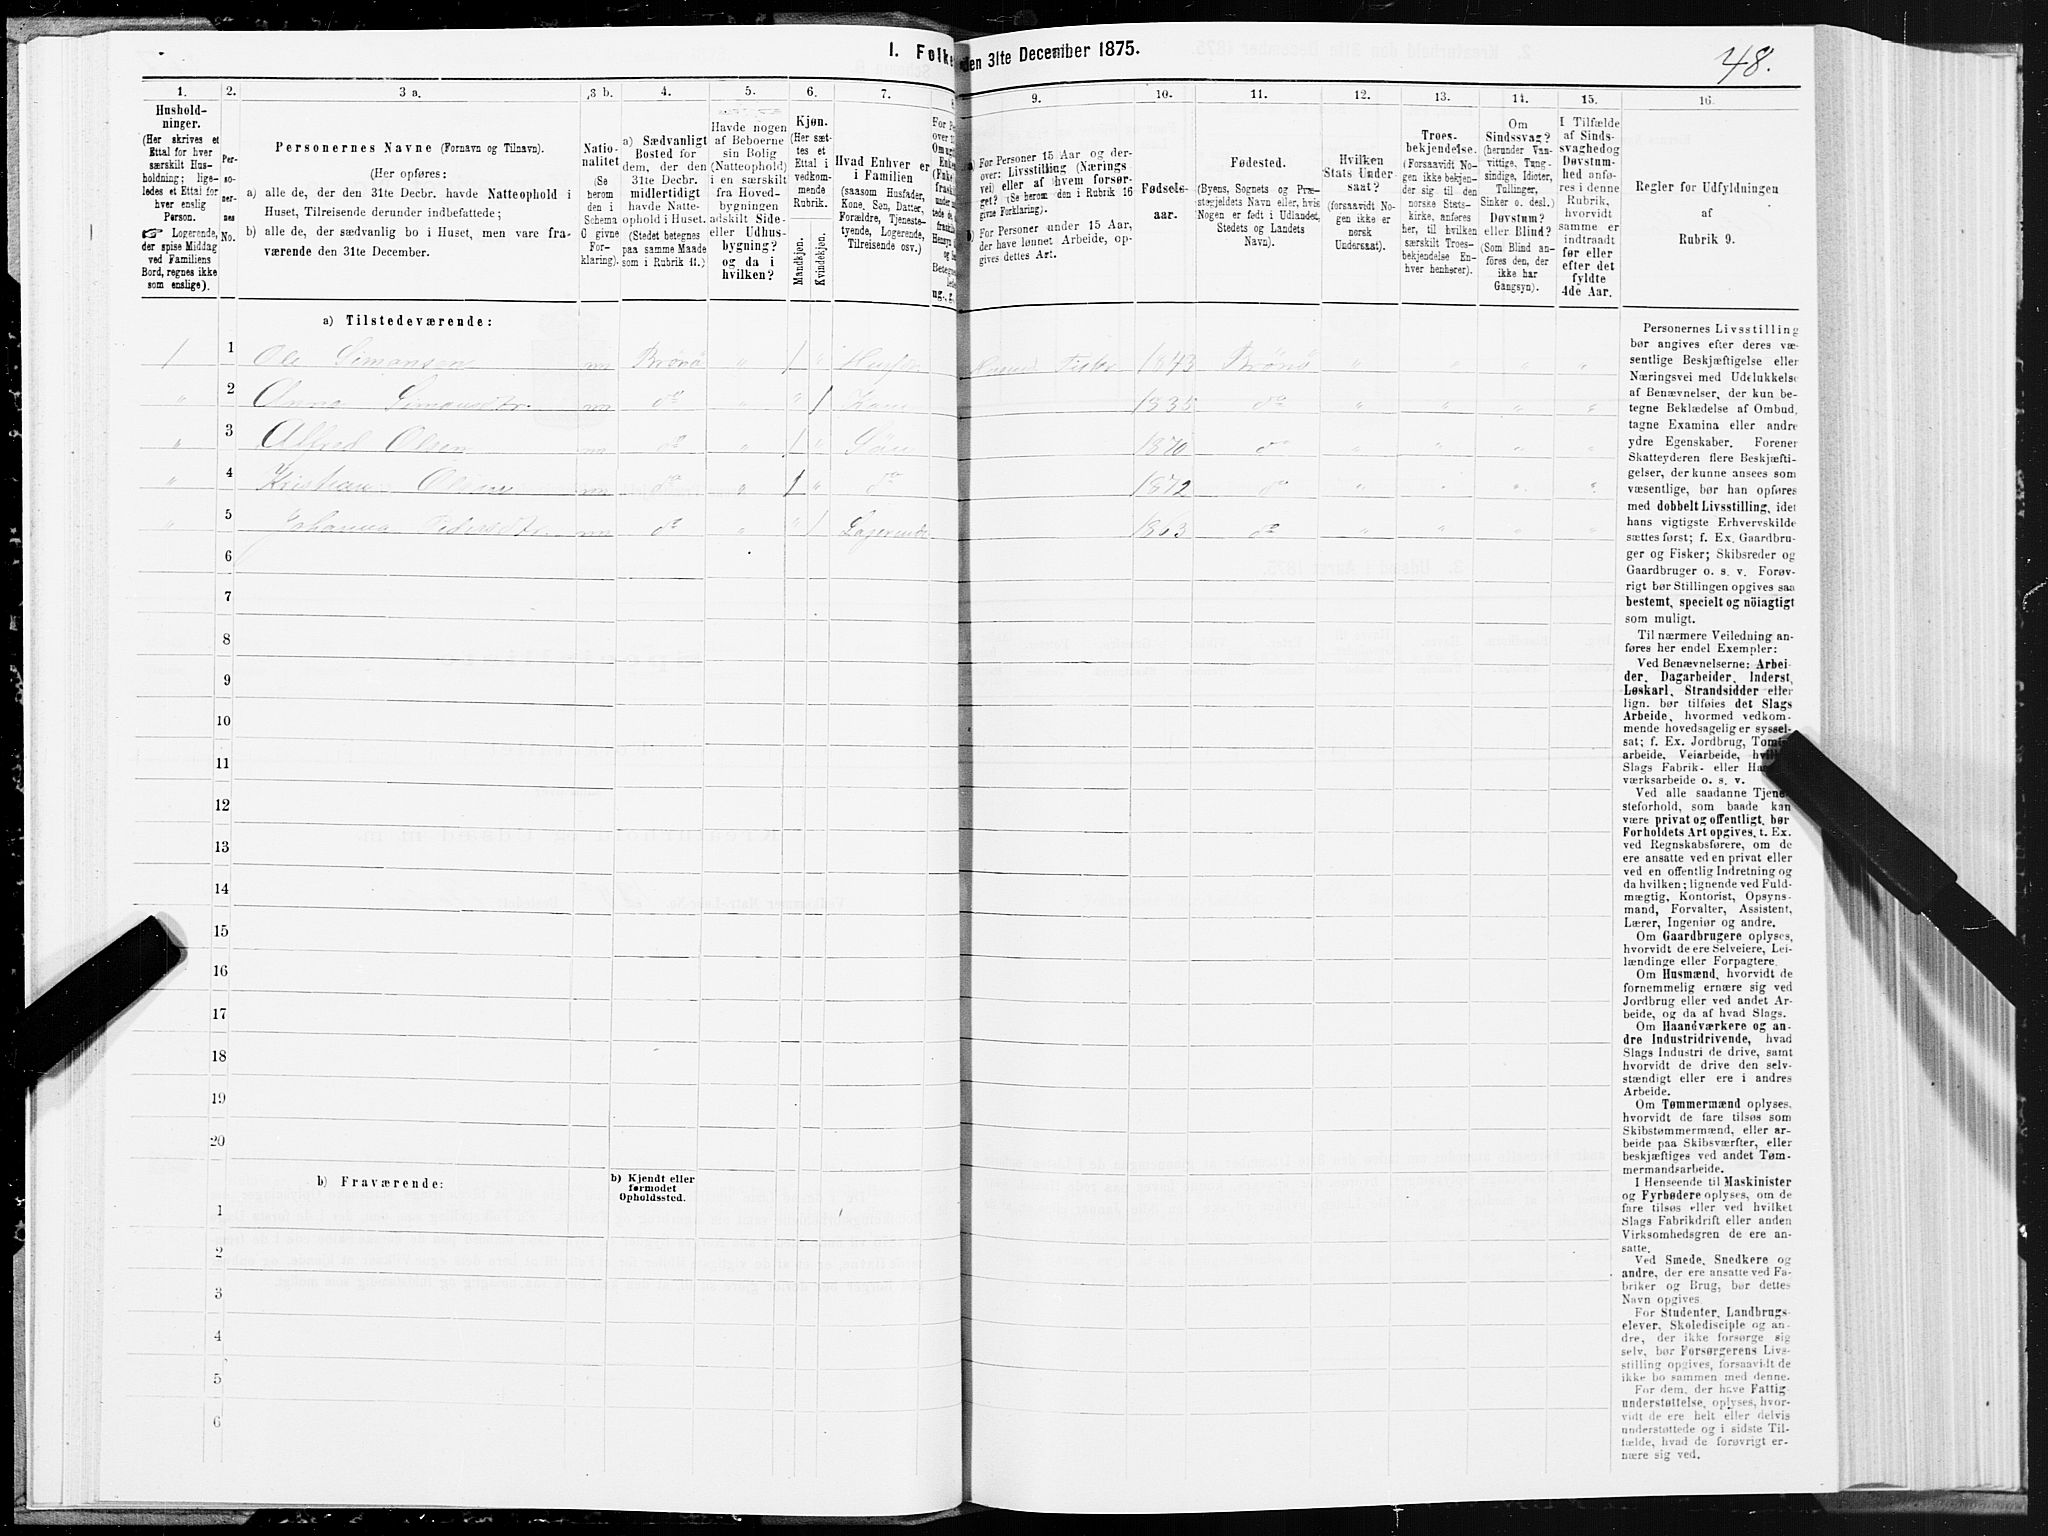 48.
1. Folke
den 31te December 1875.
1.
2.
3 a.
3 b.
4.
5.
6.
7.
9.
10.
11.
12.
13.
14.
15.
16.
Hushold-
ninger.
(Her skrives et
Ettal for hver
særskilt Hus-
holdning; lige-
ledes et Ettal for
hver enslig
Person.
☞ Logerende,
der spise Middag
ved Familiens
Bord, regnes ikke
som enslige).
Per-
so-
ner-
nes
No.
Personernes Navne (Fornavn og Tilnavn).
(Her opføres:
a) alle de, der den 31te Decbr. havde Natteophold i
Huset, Tilreisende derunder indbefattede;
b) alle de, der sædvanlig bo i Huset, men vare fra-
værende den 31te December.
Natio-
nalitet
(Se
herom
den i
Schema
C givne
For-
klaring).
a) Sædvanligt
Bosted for
dem, der den
31te Decbr.
midlertidigt
havde Natte-
ophold i Huset.
(Stedet betegnes
paa samme Maade
som i Rubrik 11.)
Havde nogen
af Beboerne
sin Bolig
(Natteophold)
i en særskilt
fra Hoved-
bygningen
adskilt Side-
eller Udhus-
bygning?
og da i
hvilken?
Kjøn.
(Her sæt-
tes et
Ettal i
vedkom-
mende
Rubrik.
Mandkjøn.
Kvindekjøn.
Hvad Enhver er
i Familien
(saasom Husfader,
Kone, Søn, Datter,
Forældre, Tjeneste-
tyende, Logerende,
Tilreisende osv.)
a) For Personer 15 Aar og der-
over: Livsstilling (Nærings-
vei) eller af hvem forsør-
get? (Se herom den i Rubrik 16
givne Forklaring).
b) For Personer under 15 Aar,
der have lønnet Arbeide, op-
gives dettes Art.
Fødsels-
aar.
Fødested.
(Byens, Sognets og Præ-
stegjeldets Navn eller, hvis
Nogen er født i Udlandet,
Stedets og Landets
Navn).
Hvilken
Stats Under-
saat?
(forsaavidt No-
gen ikke er
norsk
Undersaat).
Troes-
bekjendelse.
(Forsaavidt No-
gen ikke bekjen-
der sig til den
norske Stats-
kirke, anføres
her, til hvilken
særskilt Troes-
bekjendelse En-
hver henhører).
Om
Sindssvag?
(herunder Van-
vittige, Tung-
sindige, Idioter,
Tullinger,
Sinker o. desl.)
Døvstum?
eller Blind?
(Som Blind an-
føres den, der
ikke har
Gangsyn).
I Tilfælde
af Sinds-
svaghed og
Døvstum-
hed anfø-
res i denne
Rubrik,
hvorvidt
samme er
indtraadt
før eller
efter det
fyldte
4de Aar.
Regler for Udfyldningen
af
Rubrik 9.
a) Tilstedeværende:
1 1 Ole Simonsen m Brønø " 1 " Fisker 1843 Brønø " " " "
" 2 Anna Simonsdtr. m do " " 1 Kone 1835 do " " " "
" 3 Alfred Olsen m do " 1 " Søn 1870 do " " " "
" 4 Kristian Olsen m do " 1 " do 1872 do " " " "
" 5 Johanna Pedersdtr m do " " 1 Logerende 1863 do " " " "
6
7
8
9
10
11
12
13
14
15
16
17
18
19
20
b) Fraværende:
b) Kjendt eller
formodet
Opholdssted.
1
2
3
4
5
6
Personernes Livsstilling
bør angives efter deres væ-
sentlige Beskjæftigelse eller
Næringsvei med Udelukkelse
af Benævnelser, der kun be-
tegne Beklædelse af Ombud,
tagne Examina eller andre
ydre Egenskaber. Forener
Skatteyderen flere Beskjæfti-
gelser, der kunne ansees som
væsentlige, bør han opføres
med dobbelt Livsstilling, idet
hans vigtigste Erhvervskilde
sættes først; f. Ex. Gaardbru-
ger og Fisker; Skibsreder og
Gaardbruger o. s. v. Forøv-
rigt bør Stillingen opgives saa
bestemt, specielt og nöiagtigt
som muligt.
Til nærmere Veiledning an-
føres her endel Exempler:
Ved Benævnelserne: Arbei-
der, Dagarbeider, Inderst,
Løskarl, Strandsidder eller
lign. bør tilføies det Slags
Arbeide, hvormed vedkom-
mende hovedsagelig er syssel-
sat; f. Ex. Jordbrug, Tomte-
arbeide, Veiarbeide, hvilket
Slags Fabrik- eller Haand-
værksarbeide o. s. v.
Ved alle saadanne Tjene-
steforhold, som baade kan
være privat og offentligt, bør
Forholdets Art opgives, t. Ex.
ved Regnskabsførere, om de
ere ansatte ved en privat eller
ved en offentlig Indretning og
da hvilken; lignende ved Fuld-
mægtig, Kontorist, Opsyns-
mand, Forvalter, Assistent,
Lærer, Ingeniør og andre.
Om Gaardbrugere oplyses,
hvorvidt de ere Selveiere, Lei-
lændinge eller Forpagtere.
Om Husmænd, hvorvidt de
fornemmelig ernære sig ved
Jordbrug eller ved andet Ar-
beide, og da af hvad Slags.
Om Haandværkere og an-
dre Industridrivende, hvad
Slags Industri de drive, samt
hvorvidt de drive den selv-
stændigt eller ere i andres
Arbeide.
Om Tømmermænd oplyses,
hvorvidt de fare tilsøs som
Skibstømmermænd, eller ar-
beide paa Skibsværfter, eller
beskjæftiges ved andet Tøm-
mermandsarbeide.
I Henseende til Maskinister
og Fyrbødere oplyses, om de
fare tilsøs eller ved hvilket
Slags Fabrikdrift eller anden
Virksomhedsgren de ere an-
satte.
Ved Smede, Snedkere og
andre, der ere ansatte ved Fa-
briker og Brug, bør dettes
Navn opgives.
For Studenter, Landbrugs-
elever, Skoledisciple og an-
dre, der ikke forsørge sig
selv, bør Forsørgerens Livs-
stilling opgives, forsaavidt de
ikke bo sammen med denne.
For dem, der have Fattig-
understøttelse, oplyses, hvor-
vidt de ere helt eller delvis
understøttede og i sidste Til-
fælde, hvad de forøvrigt er-
nære sig ved.